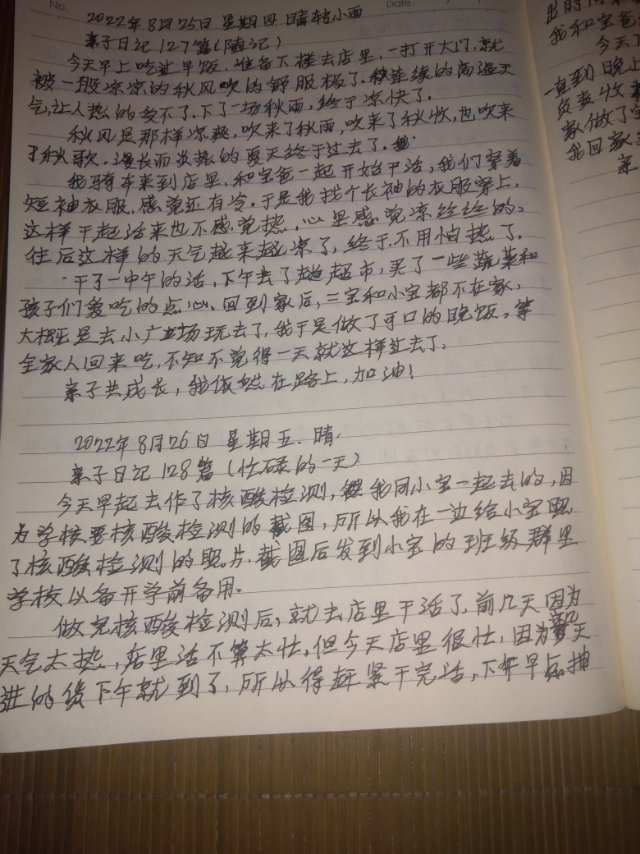 No.
Date
2022年8月25日 星期四 晴转小雨
亲子日记127篇(随记)
今天早上吃过早饭,准备下楼去店里,一打开大门,就
被一股凉凉的秋风吹的舒服极了.连续的高温天
气,让人热的受不了.下了一场秋雨,终于凉快了.
秋风是那样凉爽,吹来了秋雨,吹来了秋收,也吹来
了秋歌.漫长而炎热的夏天终于过去了.
我骑车来到店里,和宝爸一起开始干活,我们穿着
短袖衣服,感觉还有冷,于是我找个长袖的衣服穿上,
这样干起活来也不感觉热,心里感觉凉丝丝的,
往后这样的天气越来越凉了,终于不用怕热了.
干了一中午的活,下午去了趟超市,买了一些蔬菜和
孩子们爱吃的点心,回到家后,二宝和小宝都不在家,
大概是去小广场玩去了,我于是做了可口的晚饭,等
全家人回来吃,不知不觉得一天就这样过去了.
亲子共成长,我依然在路上,加油!
2022年8月26日 星期五.晴
亲子日记128篇(忙碌的一天)
今天早起去作了核酸检测,我同小宝一起去的,因
为学校要核酸检测的截图,所以我在一边给小宝照
了核酸检测的照片.截图后发到小宝的班级群里
学校以备开学前备用.
做完核酸检测后,就去店里干活了.前几天因为
天气太热,店里活不算太忙,但今天店里很忙,因为天
进的货下午就到了,所以得赶紧干完活,下午早点抽
出的
我和宝爸
今天
一直到晚上
负责收
家做了
我回家
亲